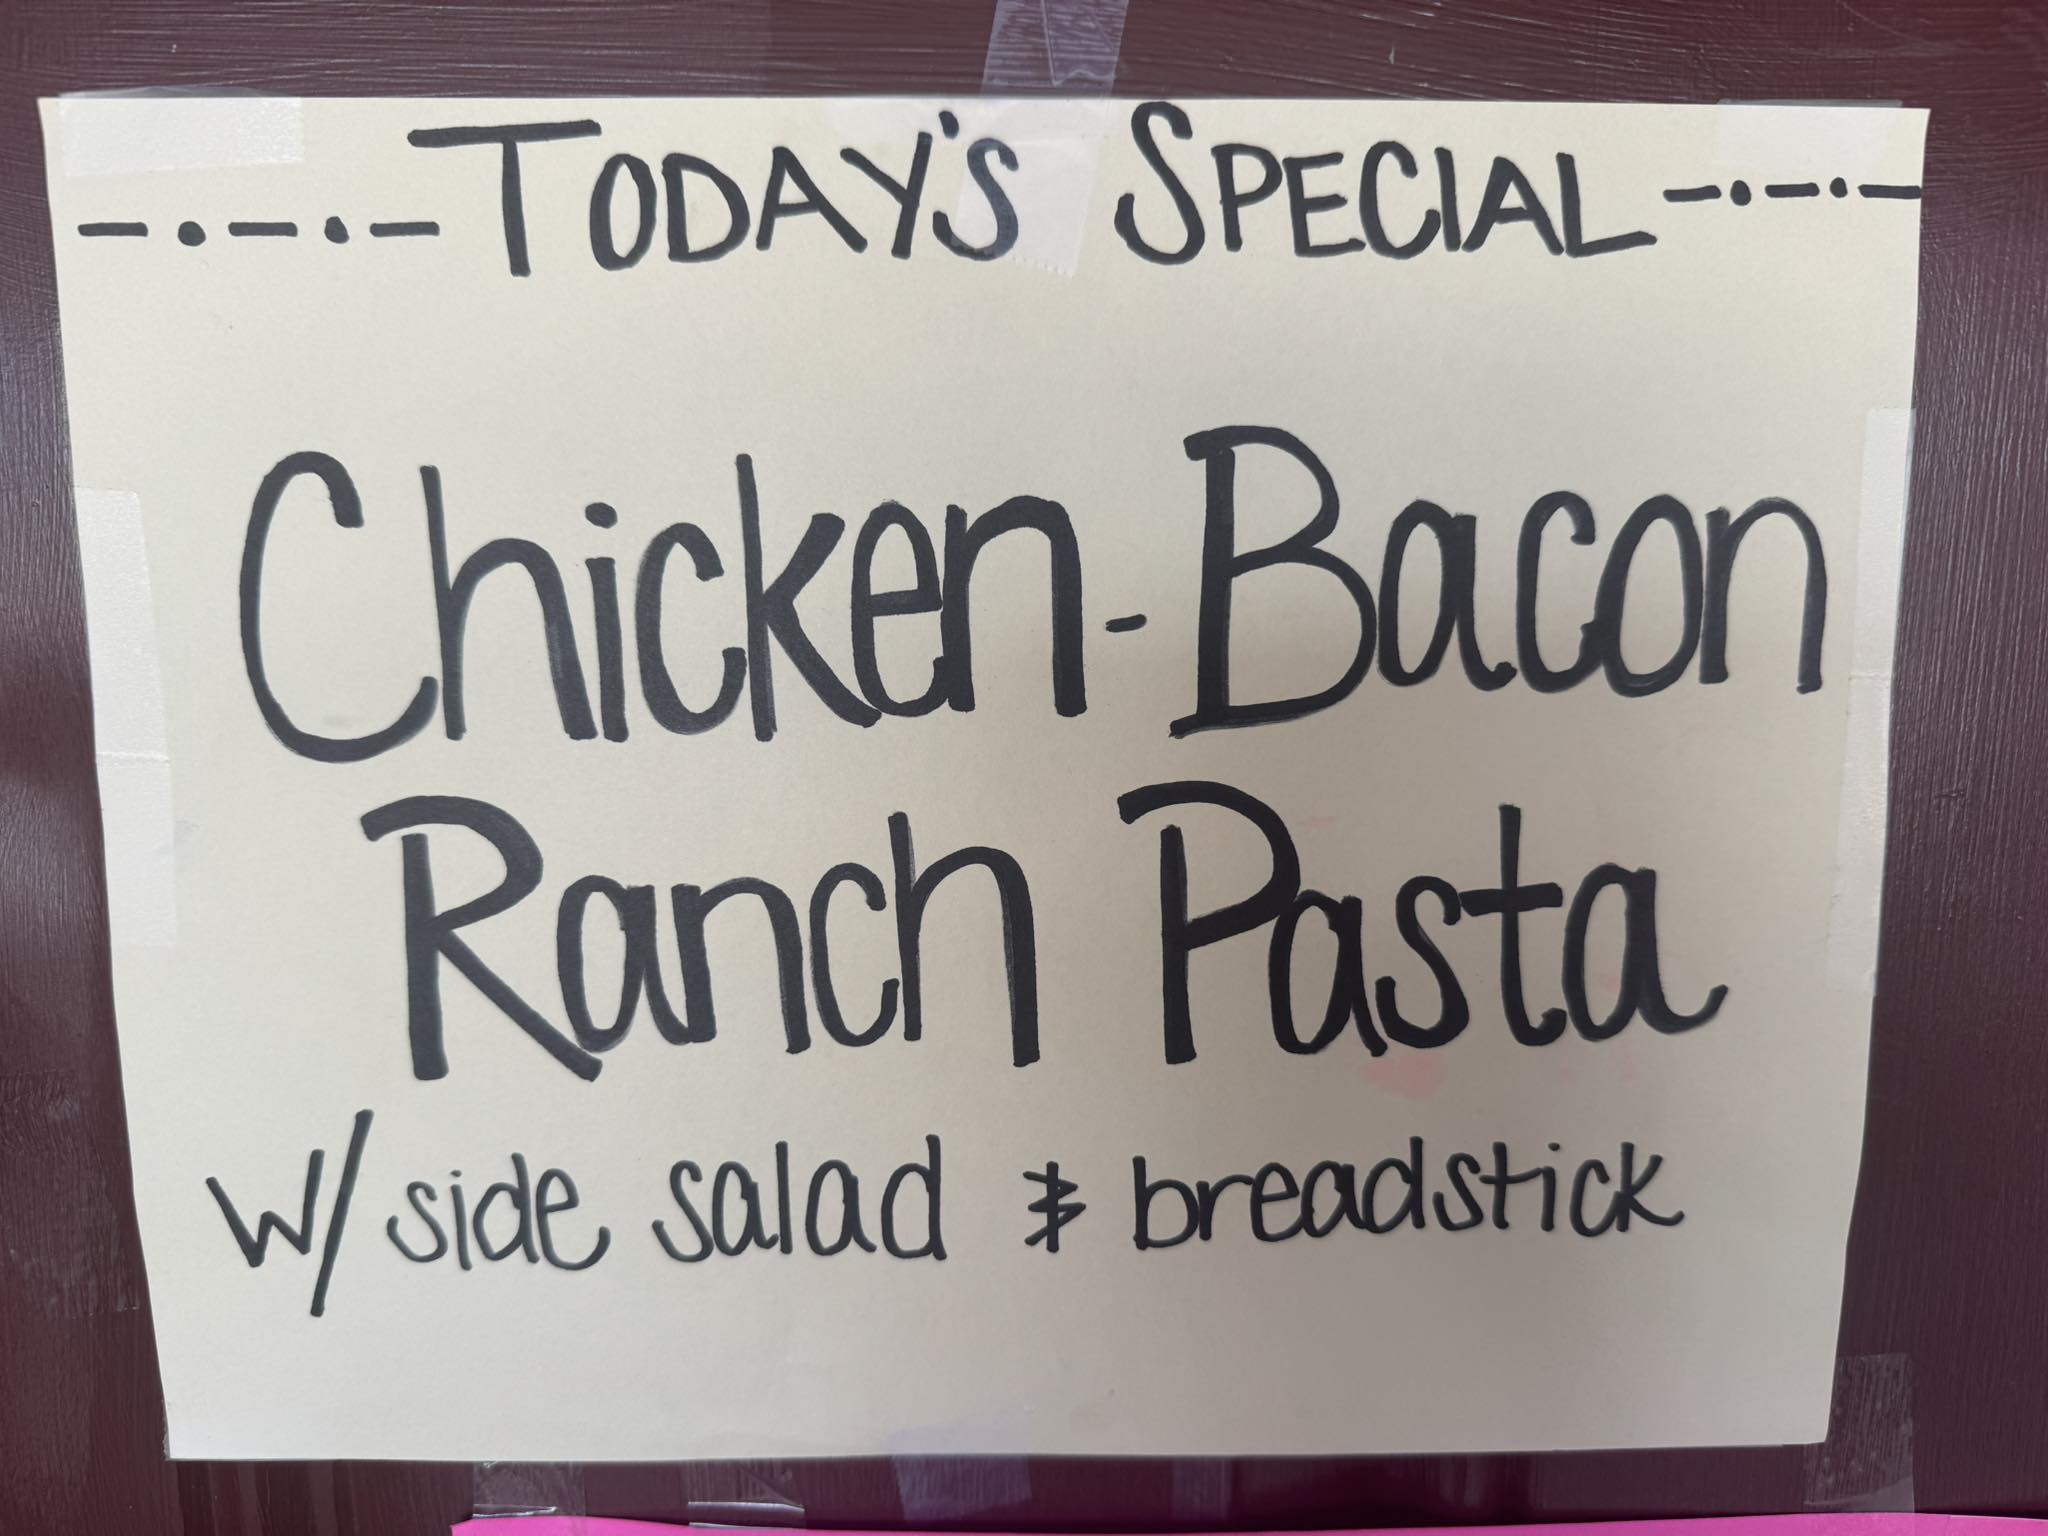 -·-·-TODAY'S SPECIAL-·-·-
Chicken-Bacon
Ranch Pasta
w/ side salad & breadstick